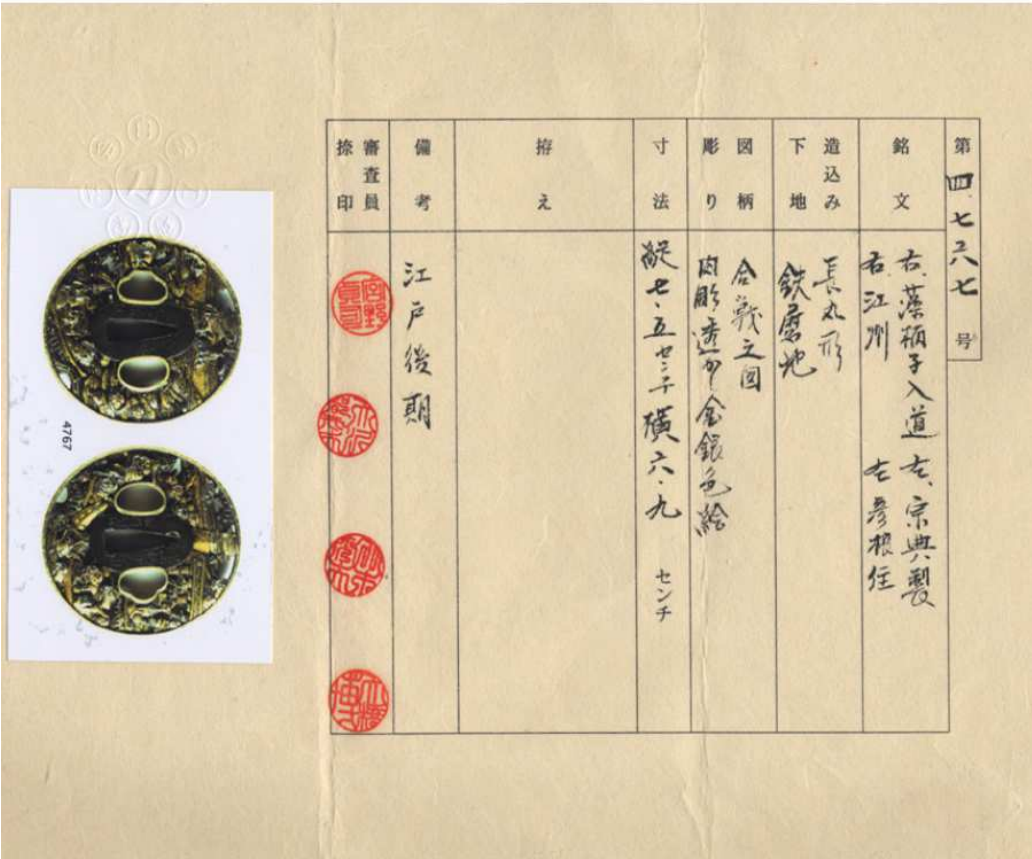 第四、七六七号
銘文
右、藻柄子入道 左、宗典製
右、江州 左 彦根住
造込み
下地
長丸形
鉄磨地
図柄
彫り
合戦之図
肉彫透かし金銀色絵
寸法
縦七・五センチ 横六・九 センチ
拵え
備考
江戸後期
審査員
捺印
4767